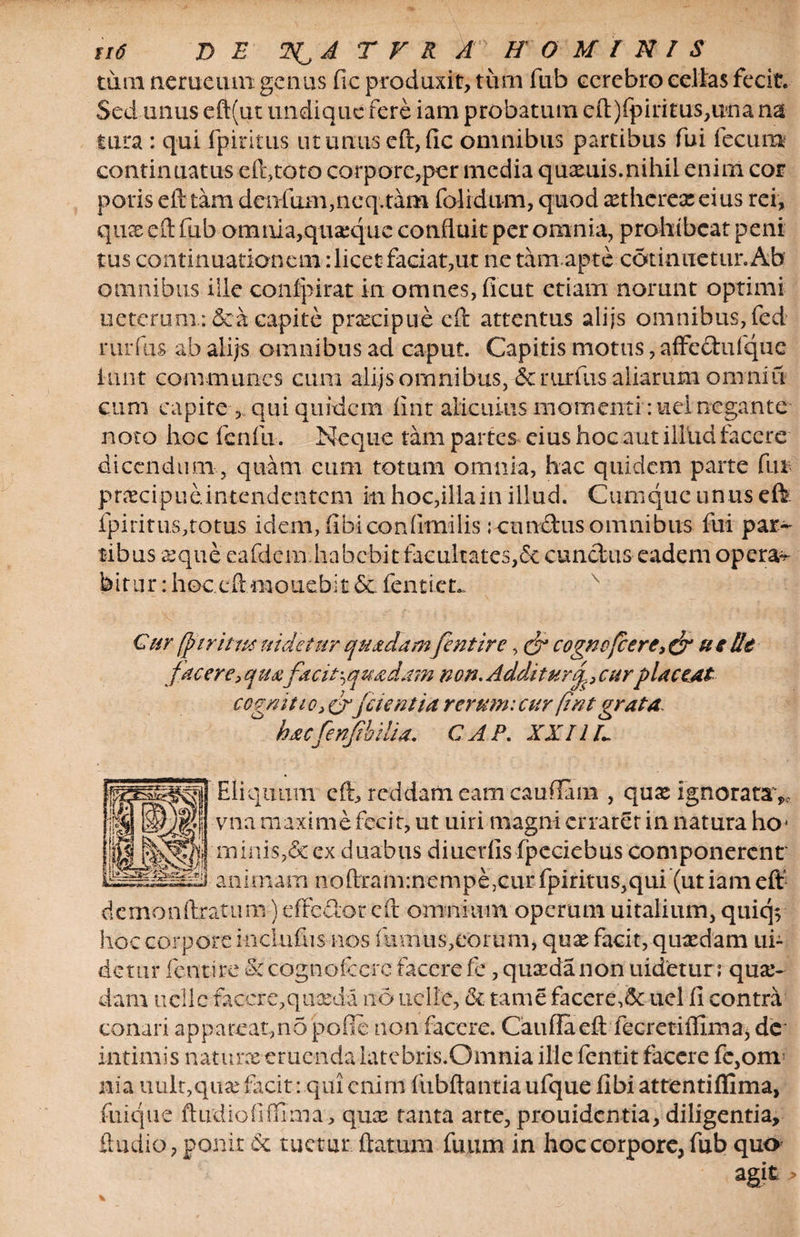 116 DE NATVRA HOMINIS
tùm nerueum genus sic produxit, tùm sub cerebro cellas fecit.
Sed unus est(ut undique ferè iam probatum est)spiritus,una na
tura : qui spiritus ut unus est, sic omnibus partibus sui secum
continuatus est,toto corpore,per media quæuis.nihil enim cor
poris est tàm densum,neq.tàm solidum, quod æthereæ eius rei,
quæ est sub omnia,quæque confluit per omnia, prohibeat peni
tus continuationem:licet faciat,ut ne tàm aptè cōtinuetur.Ab
omnibus ille conspirat in omnes, sicut etiam norunt optimi
ueterum: & à capitè præcipuè est attentus alijs omnibus, sed
rursus ab alijs omnibus ad caput. Capitis motus, affectusque
sunt communes cum alijs omnibus, & rursus aliarum omniū
cum capite, qui quidem sint alicuius momenti: uel negante
noto hoc sensu. Neque tàm partes eius hoc aut illud facere
dicendum, quàm eum totum omnia, hac quidem parte sui
præcipuè intendentem in hoc,illa in illud. Cumque unus est
spiritus,totus idem, sibi consimilis: cunctus omnibus sui par-
tibus æquè easdem habebit facultates,& cunctus eadem opera-
bitur: hoc est mouebit & sentiet.
Cur spiritus uidetur quædam sentire, & cognoscere, & uelle
facere, quæ facit; quædam non. Additurq́, cur placeat
cognitio, & scientia rerum: cur sint grata
hæc sensibilia. CAP. XXIII.
REliquum est, reddam eam caussam , quæ ignorata,
vna maximè fecit, ut uiri magni errarēt in natura ho-
minis,& ex duabus diuersis speciebus componerent
animam nostram:nempè,cur spiritus,qui (ut iam est
demonstratum) effector est omnium operum uitalium, quiq;
hoc corpore inclusus nos sumus,eorum, quæ facit, quædam ui-
detur sentire & cognoscere facere se, quædā non uidetur: quæ-
dam uelle facere,quædā nō uelle, & tamē facere,& uel si contrà
conari appareat,nō posse non facere. Caussa est secretissima, de
intimis naturæ eruenda latebris.Omnia ille sentit facere se,om
nia uult,quæ facit: qui enim substantia usque sibi attentissima,
suique studiosissima, quæ tanta arte, prouidentia, diligentia,
studio, ponit & tuetur statum suum in hoc corpore, sub quo
agit